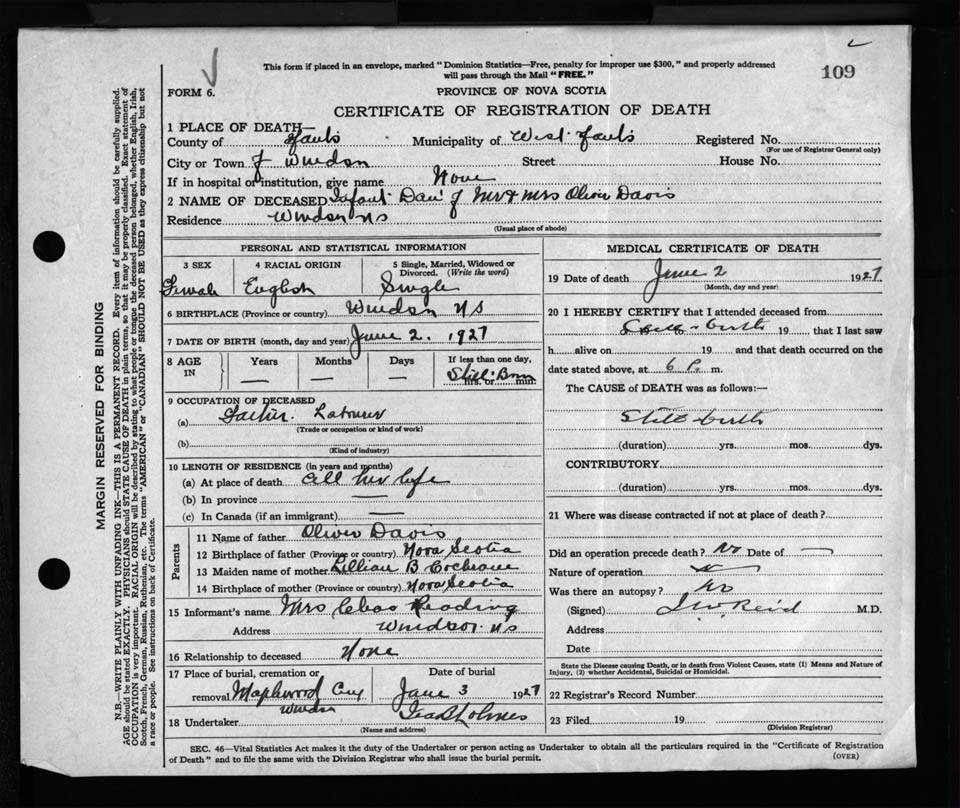 This form if placed in an envelope, marked "Dominion Statistics—Free, penalty for improper use $300," and properly addressed
will pass through the Mail "FREE."
109
FORM 6.
PROVINCE OF NOVA SCOTIA
CERTIFICATE OF REGISTRATION OF DEATH
1 PLACE OF DEATH—
County of Hants Municipality of West Hants Registered No.
(For use of Registrar General only)
City or Town of Windsor Street House No.
If in hospital or institution, give name None
2 NAME OF DECEASED Infant Dau of Mr & Mrs Oliver Davis
Residence Windsor NS
(Usual place of abode)
PERSONAL AND STATISTICAL INFORMATION
3 SEX 4 RACIAL ORIGIN 5 Single, Married, Widowed or
Divorced. (Write the word)
Female English Single
6 BIRTHPLACE (Province or country) Windsor NS
7 DATE OF BIRTH (month, day and year) June 2. 1927
8 AGE IN Years Months Days If less than one day,
— — — Still-Born
hrs. or min.
9 OCCUPATION OF DECEASED
(a) Father. Labourer
(Trade or occupation or kind of work)
(b)
(Kind of industry)
10 LENGTH OF RESIDENCE (in years and months)
(a) At place of death all her life
(b) In province —
(c) In Canada (if an immigrant) —
Parents
11 Name of father Oliver Davis
12 Birthplace of father (Province or country) Nova Scotia
13 Maiden name of mother Lillian B Cochrane
14 Birthplace of mother (Province or country) Nova Scotia
15 Informant's name Mrs Chas Reading
Address Windsor NS
16 Relationship to deceased None
17 Place of burial, cremation or Date of burial
removal Maplewood Cem June 3 1927
Windsor
18 Undertaker Holmes
(Name and address)
MEDICAL CERTIFICATE OF DEATH
19 Date of death June 2 1927
(Month, day and year)
20 I HEREBY CERTIFY that I attended deceased from
Still-birth 19 that I last saw
h alive on 19 and that death occurred on the
date stated above, at 6 P. m.
The CAUSE of DEATH was as follows:—
Still-birth
(duration) yrs. mos. dys.
CONTRIBUTORY
(duration) yrs. mos. dys.
21 Where was disease contracted if not at place of death?
Did an operation precede death? No Date of —
Nature of operation
Was there an autopsy? No
(Signed) Reid M.D.
Address
Date
State the Disease causing Death, or in death from Violent Causes, state (1) Means and Nature of
Injury, (2) whether Accidental, Suicidal or Homicidal.
22 Registrar's Record Number
23 Filed 19
(Division Registrar)
SEC. 46—Vital Statistics Act makes it the duty of the Undertaker or person acting as Undertaker to obtain all the particulars required in the "Certificate of Registration
of Death" and to file the same with the Division Registrar who shall issue the burial permit.
(OVER)
MARGIN RESERVED FOR BINDING
N.B.—WRITE PLAINLY WITH UNFADING INK—THIS IS A PERMANENT RECORD. Every item of information should be carefully supplied.
AGE should be stated EXACTLY. PHYSICIANS should STATE CAUSE OF DEATH in plain terms, so that it may be properly classified. Exact statement of
OCCUPATION is very important. RACIAL ORIGIN will be described by stating to what people or tongue the deceased person belonged, whether English, Irish,
Scotch, French, German, Russian, Ruthenian, etc. The terms "AMERICAN" or "CANADIAN" SHOULD NOT BE USED as they express citizenship but not
a race or people. See instructions on back of Certificate.